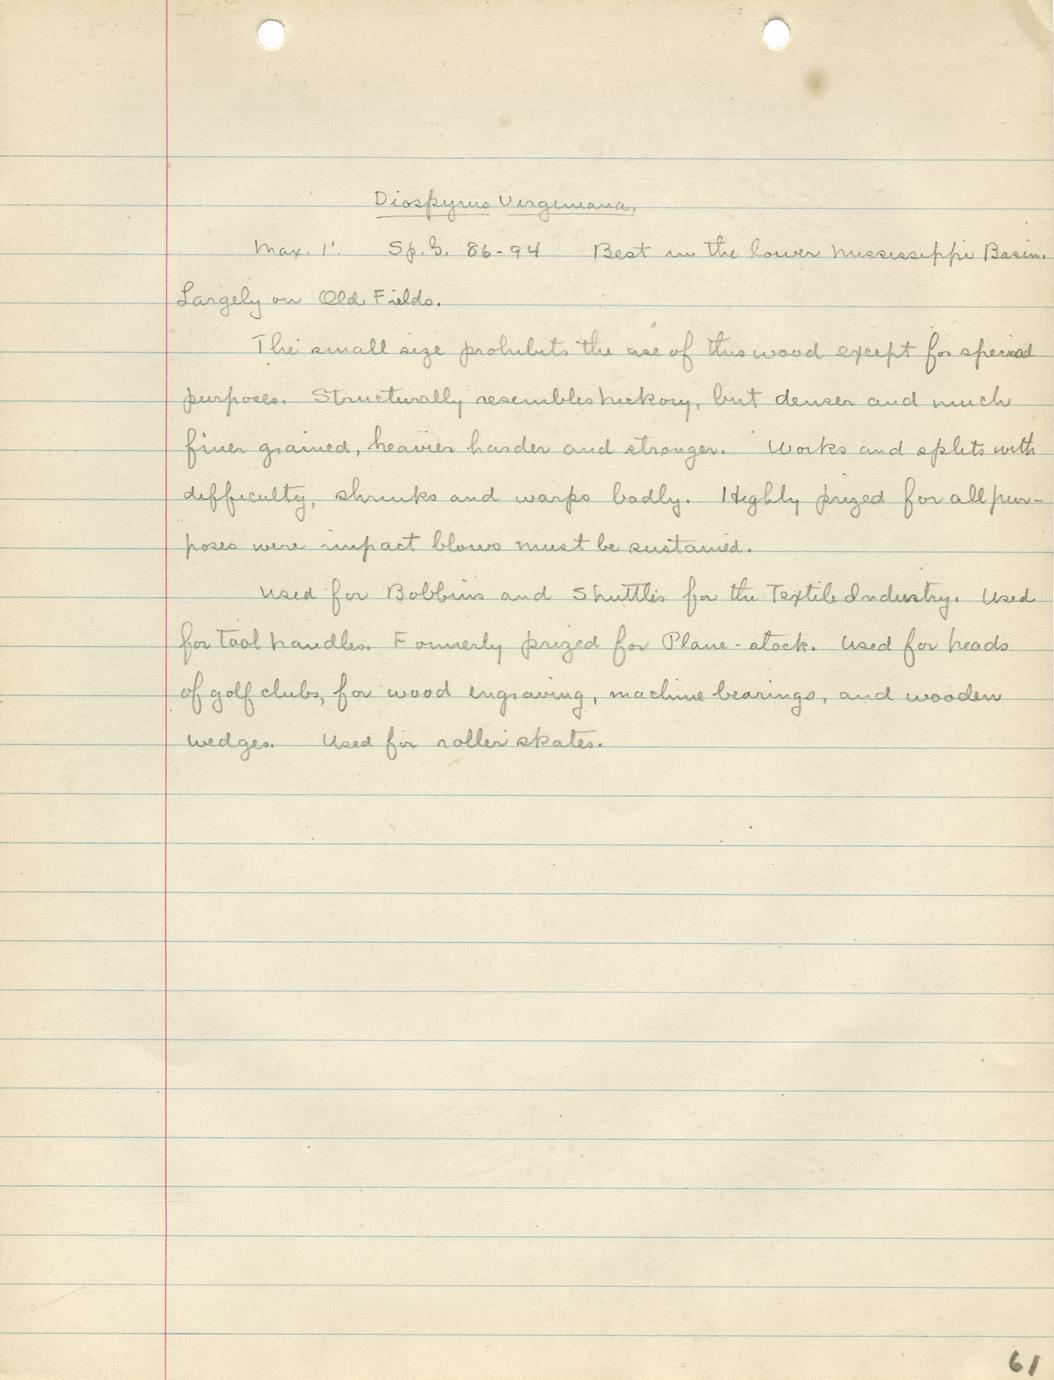 Diospyrus Virginiana.
Max. 1'. Sp. G. 86-94 Best in the lower Mississippi Basin.
Largely on Old Fields.
The small size prohibits the use of this wood except for special
purposes. Structurally resembles hickory, but denser and much
finer grained, heavier harder and stronger. Works and splits with
difficulty, shrinks and warps badly. Highly prized for all pur-
poses were impact blows must be sustained.
Used for Bobbins and Shuttles for the Textile Industry. Used
for tool handles. Formerly prized for Plane-stock. Used for heads
of golf clubs, for wood engraving, machine bearings, and wooden
wedges. Used for roller skates.
61